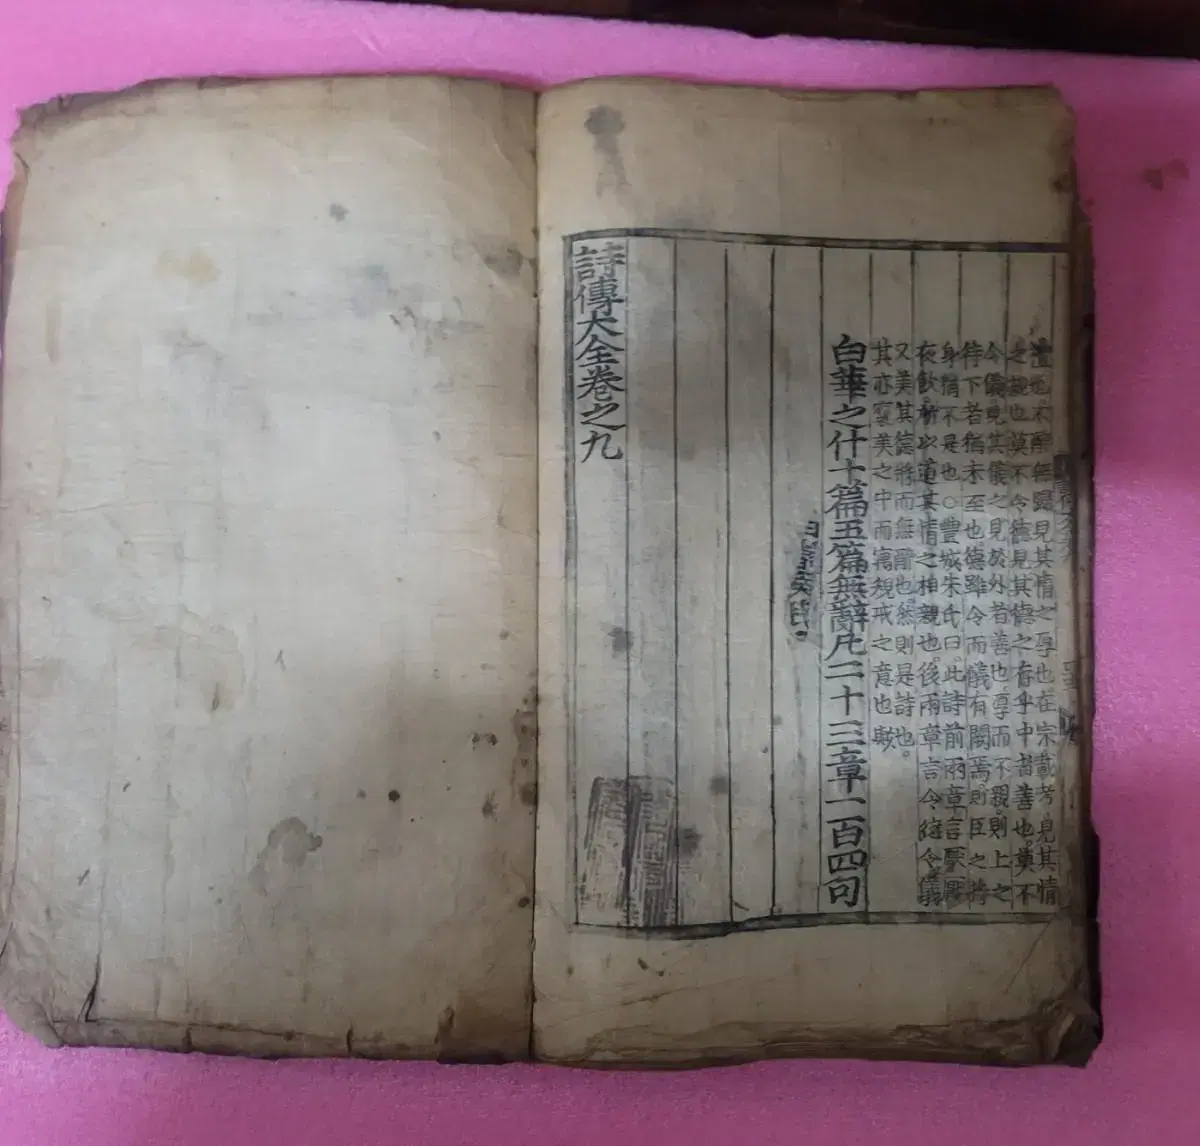 也不醉無歸見其情之厚也在宗載考見其情
之親也莫不令德見其德之存乎中者善也莫不
令儀見其儀之見於外者善也厚而不親則上之
待下者猶未至也德雖令而儀有闕焉則臣之將
身猶不是也○豐城朱氏曰此詩前兩章言厭厭
夜飲所以道其情之相親也後兩章言令德令儀
又美其德將而無醉也然則是詩也
其亦褒美之中而寓規戒之意也歟
白華之什十篇五篇無辭凡二十三章一百四句
詩傳大全卷之九